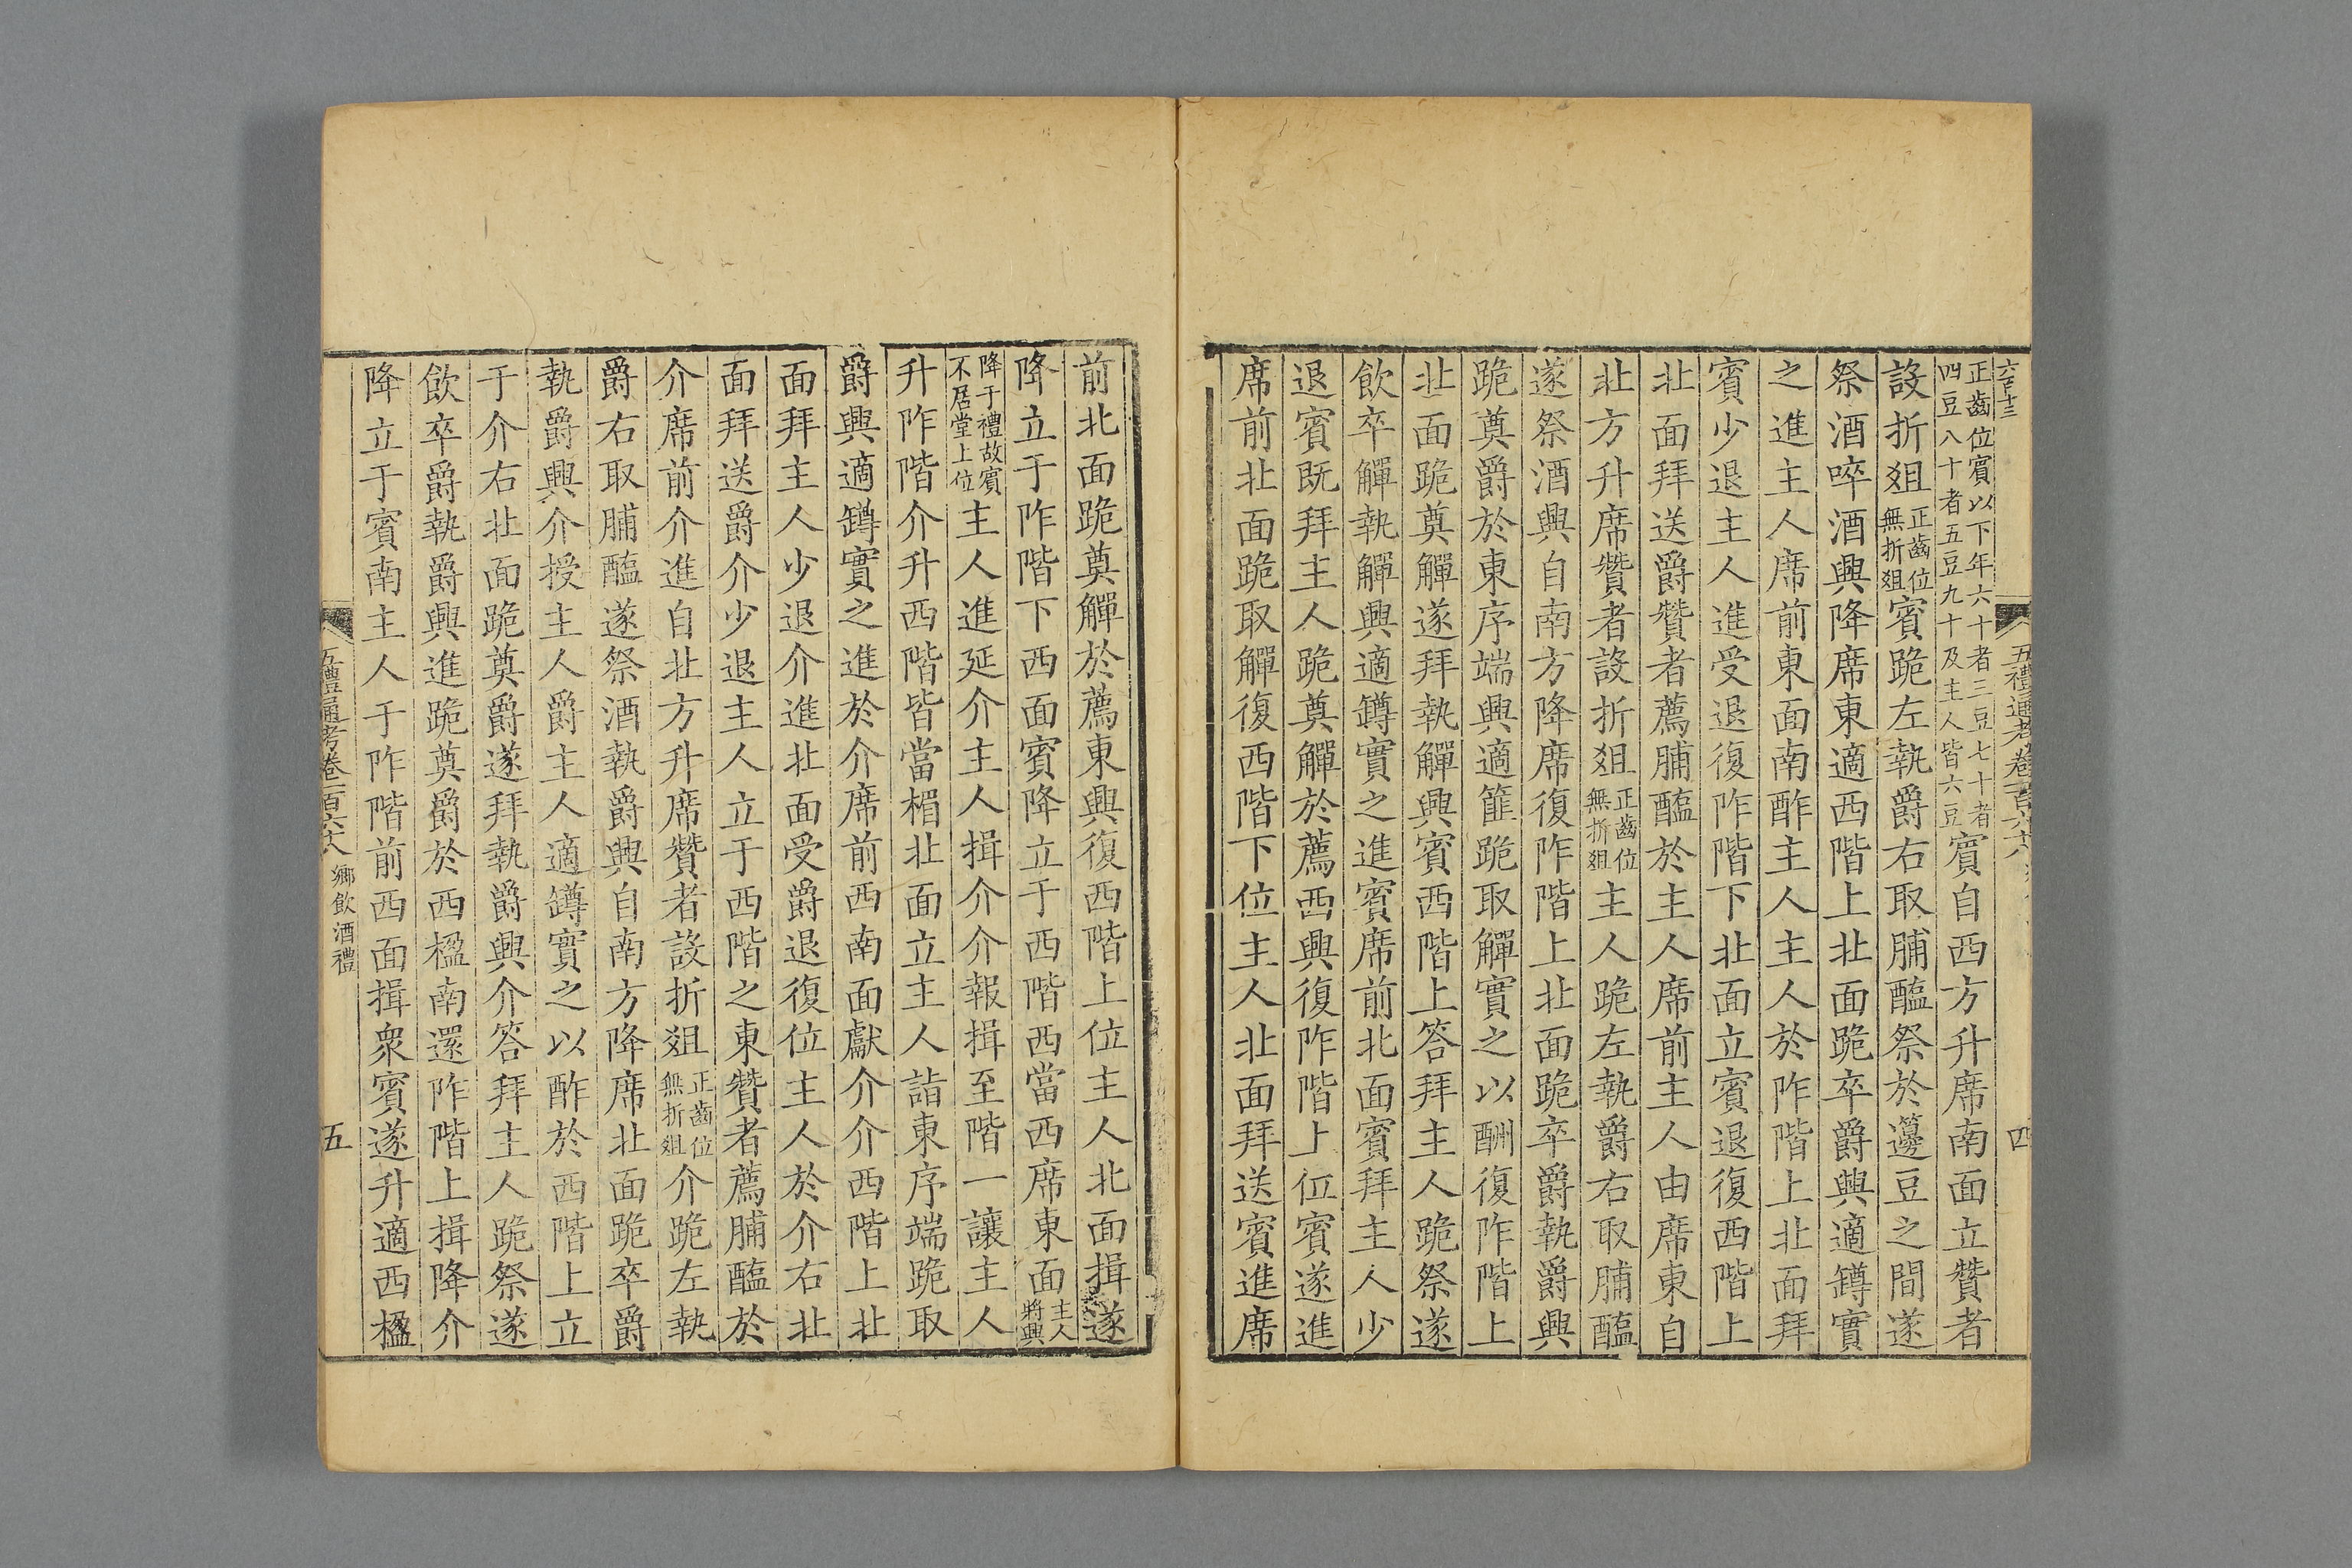 六百十三
五禮通考卷一百六十八
四
正齒位賓以下年六十者三豆七十者四豆八十者五豆九十及主人皆六豆賓自西方升席南面立贊者
設折俎正齒位無折俎賓跪左執爵右取脯醢祭於籩豆之間遂
祭酒啐酒興降席東適西階上北面跪卒爵興適罇實
之進主人席前東面南酢主人主人於阼階上北面拜
賓少退主人進受退復阼階下北面立賓退復西階上
北面拜送爵贊者薦脯醢於主人席前主人由席東自
北方升席贊者設折俎正齒位無折俎主人跪左執爵右取脯醢
遂祭酒興自南方降席復阼階上北面跪卒爵執爵興
跪奠爵於東序端興適篚跪取觶實之以酬復阼階上
北面跪奠觶遂拜執觶興賓西階上答拜主人跪祭遂
飲卒觶執觶興適罇實之進賓席前北面賓拜主人少
退賓既拜主人跪奠觶於薦西興復阼階上位賓遂進
席前北面跪取觶復西階下位主人北面拜送賓進席
前北面跪奠觶於薦東興復西階上位主人北面揖遂
降立于阼階下西面賓降立于西階西當西席東面主人將興
降于禮故賓不居堂上位主人進延介主人揖介介報揖至階一讓主人
升阼階介升西階皆當楣北面立主人詣東序端跪取
爵興適罇實之進於介席前西南面獻介介西階上北
面拜主人少退介進北面受爵退復位主人於介右北
面拜送爵介少退主人立于西階之東贊者薦脯醢於
介席前介進自北方升席贊者設折俎正齒位無折俎介跪左執
爵右取脯醢遂祭酒執爵興自南方降席北面跪卒爵
執爵興介授主人爵主人適罇實之以酢於西階上立
于介右北面跪奠爵遂拜執爵興介答拜主人跪祭遂
飲卒爵執爵興進跪奠爵於西楹南還阼階上揖降介
降立于賓南主人于阼階前西面揖衆賓遂升適西楹
五禮通考卷一百六十八 鄉飲酒禮
五